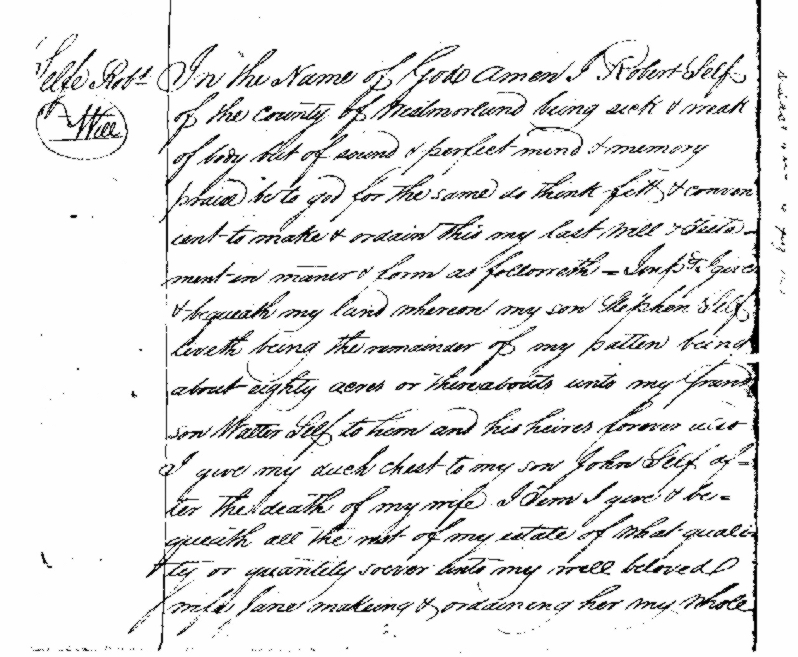 Selfe Rob.t
Will
In the Name of God Amen I Robert Self
of the county of Westmorland being sick & weak
of body but of sound & perfect mind & memory
praise be to god for the same do think fitt & conven
ient to make & ordain this my last Will & Testa-
ment in maner & form as followeth = Imp.rs I give
& bequeath my land whereon my son Stephen Self
liveth being the remainder of my patten being
about eighty acres or thereabouts unto my grand
son Walter Self to him and his heires forever also
I give my duch chest to my son John Self af=
ter the death of my wife. I Tem I give & be=
queath all the rest of my estate of what quali
ty or quantity soever unto my well beloved
wife Jane makeing & ordaining her my whole